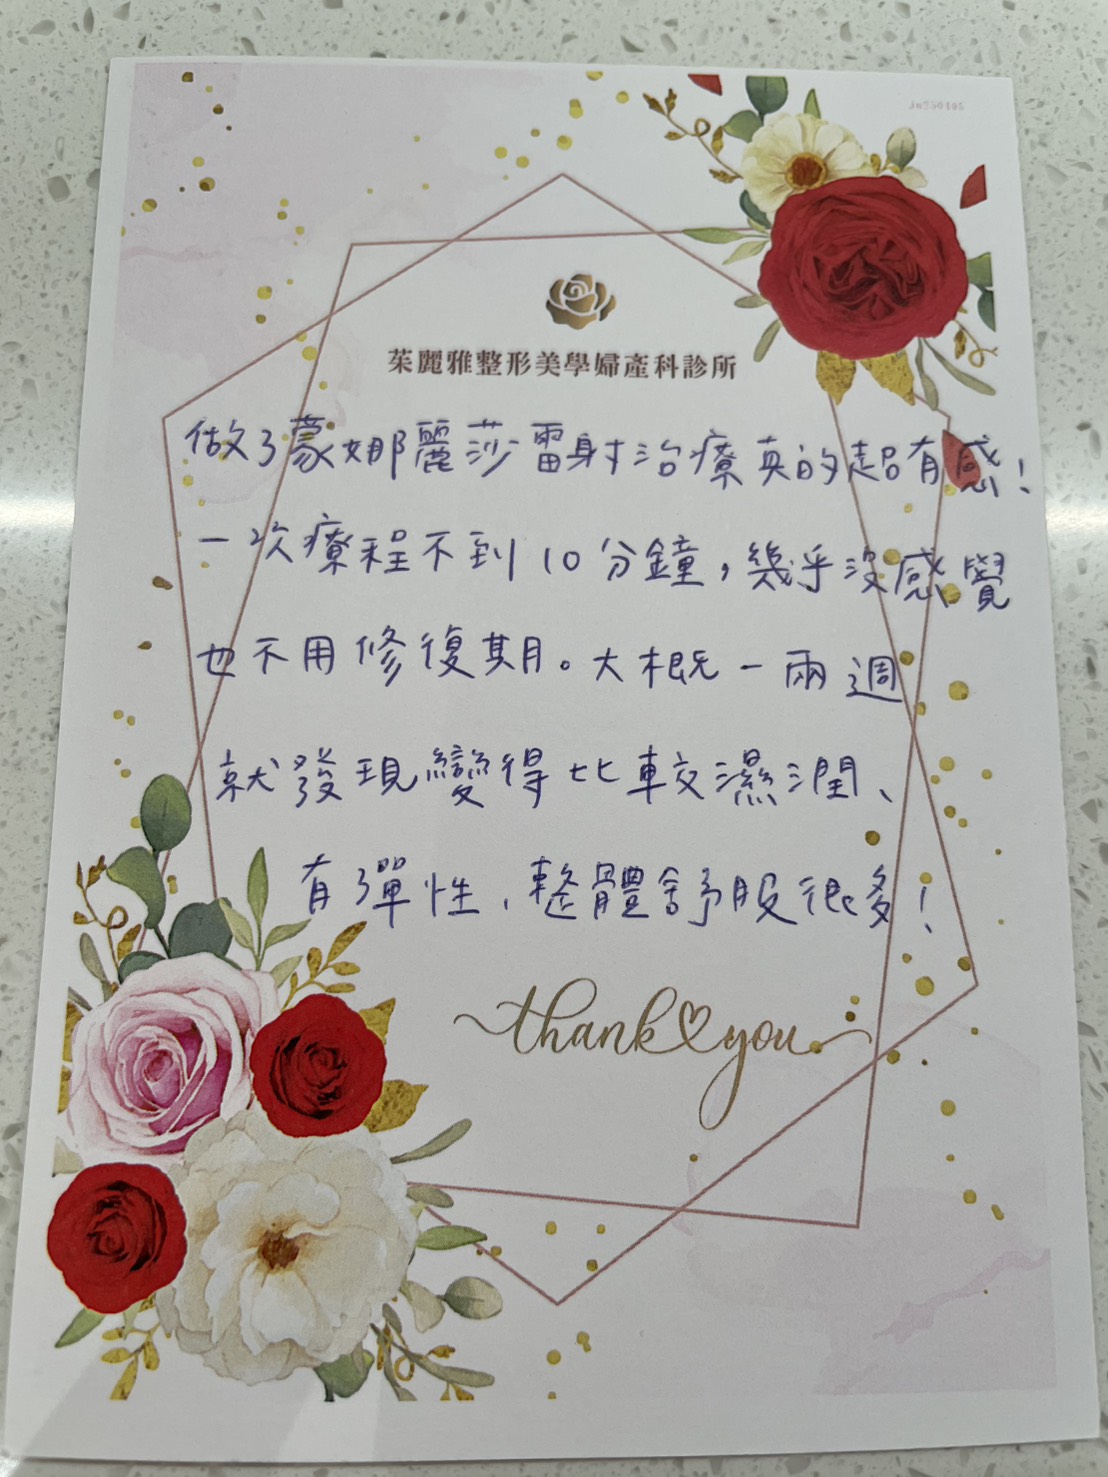 Ju250405
茱麗雅整形美學婦產科診所
做了蒙娜麗莎雷射治療真的超有感!
一次療程不到10分鐘,幾乎沒感覺
也不用修復期。大概一兩週
就發現變得比較濕潤、
有彈性、整體舒服很多!
thank you